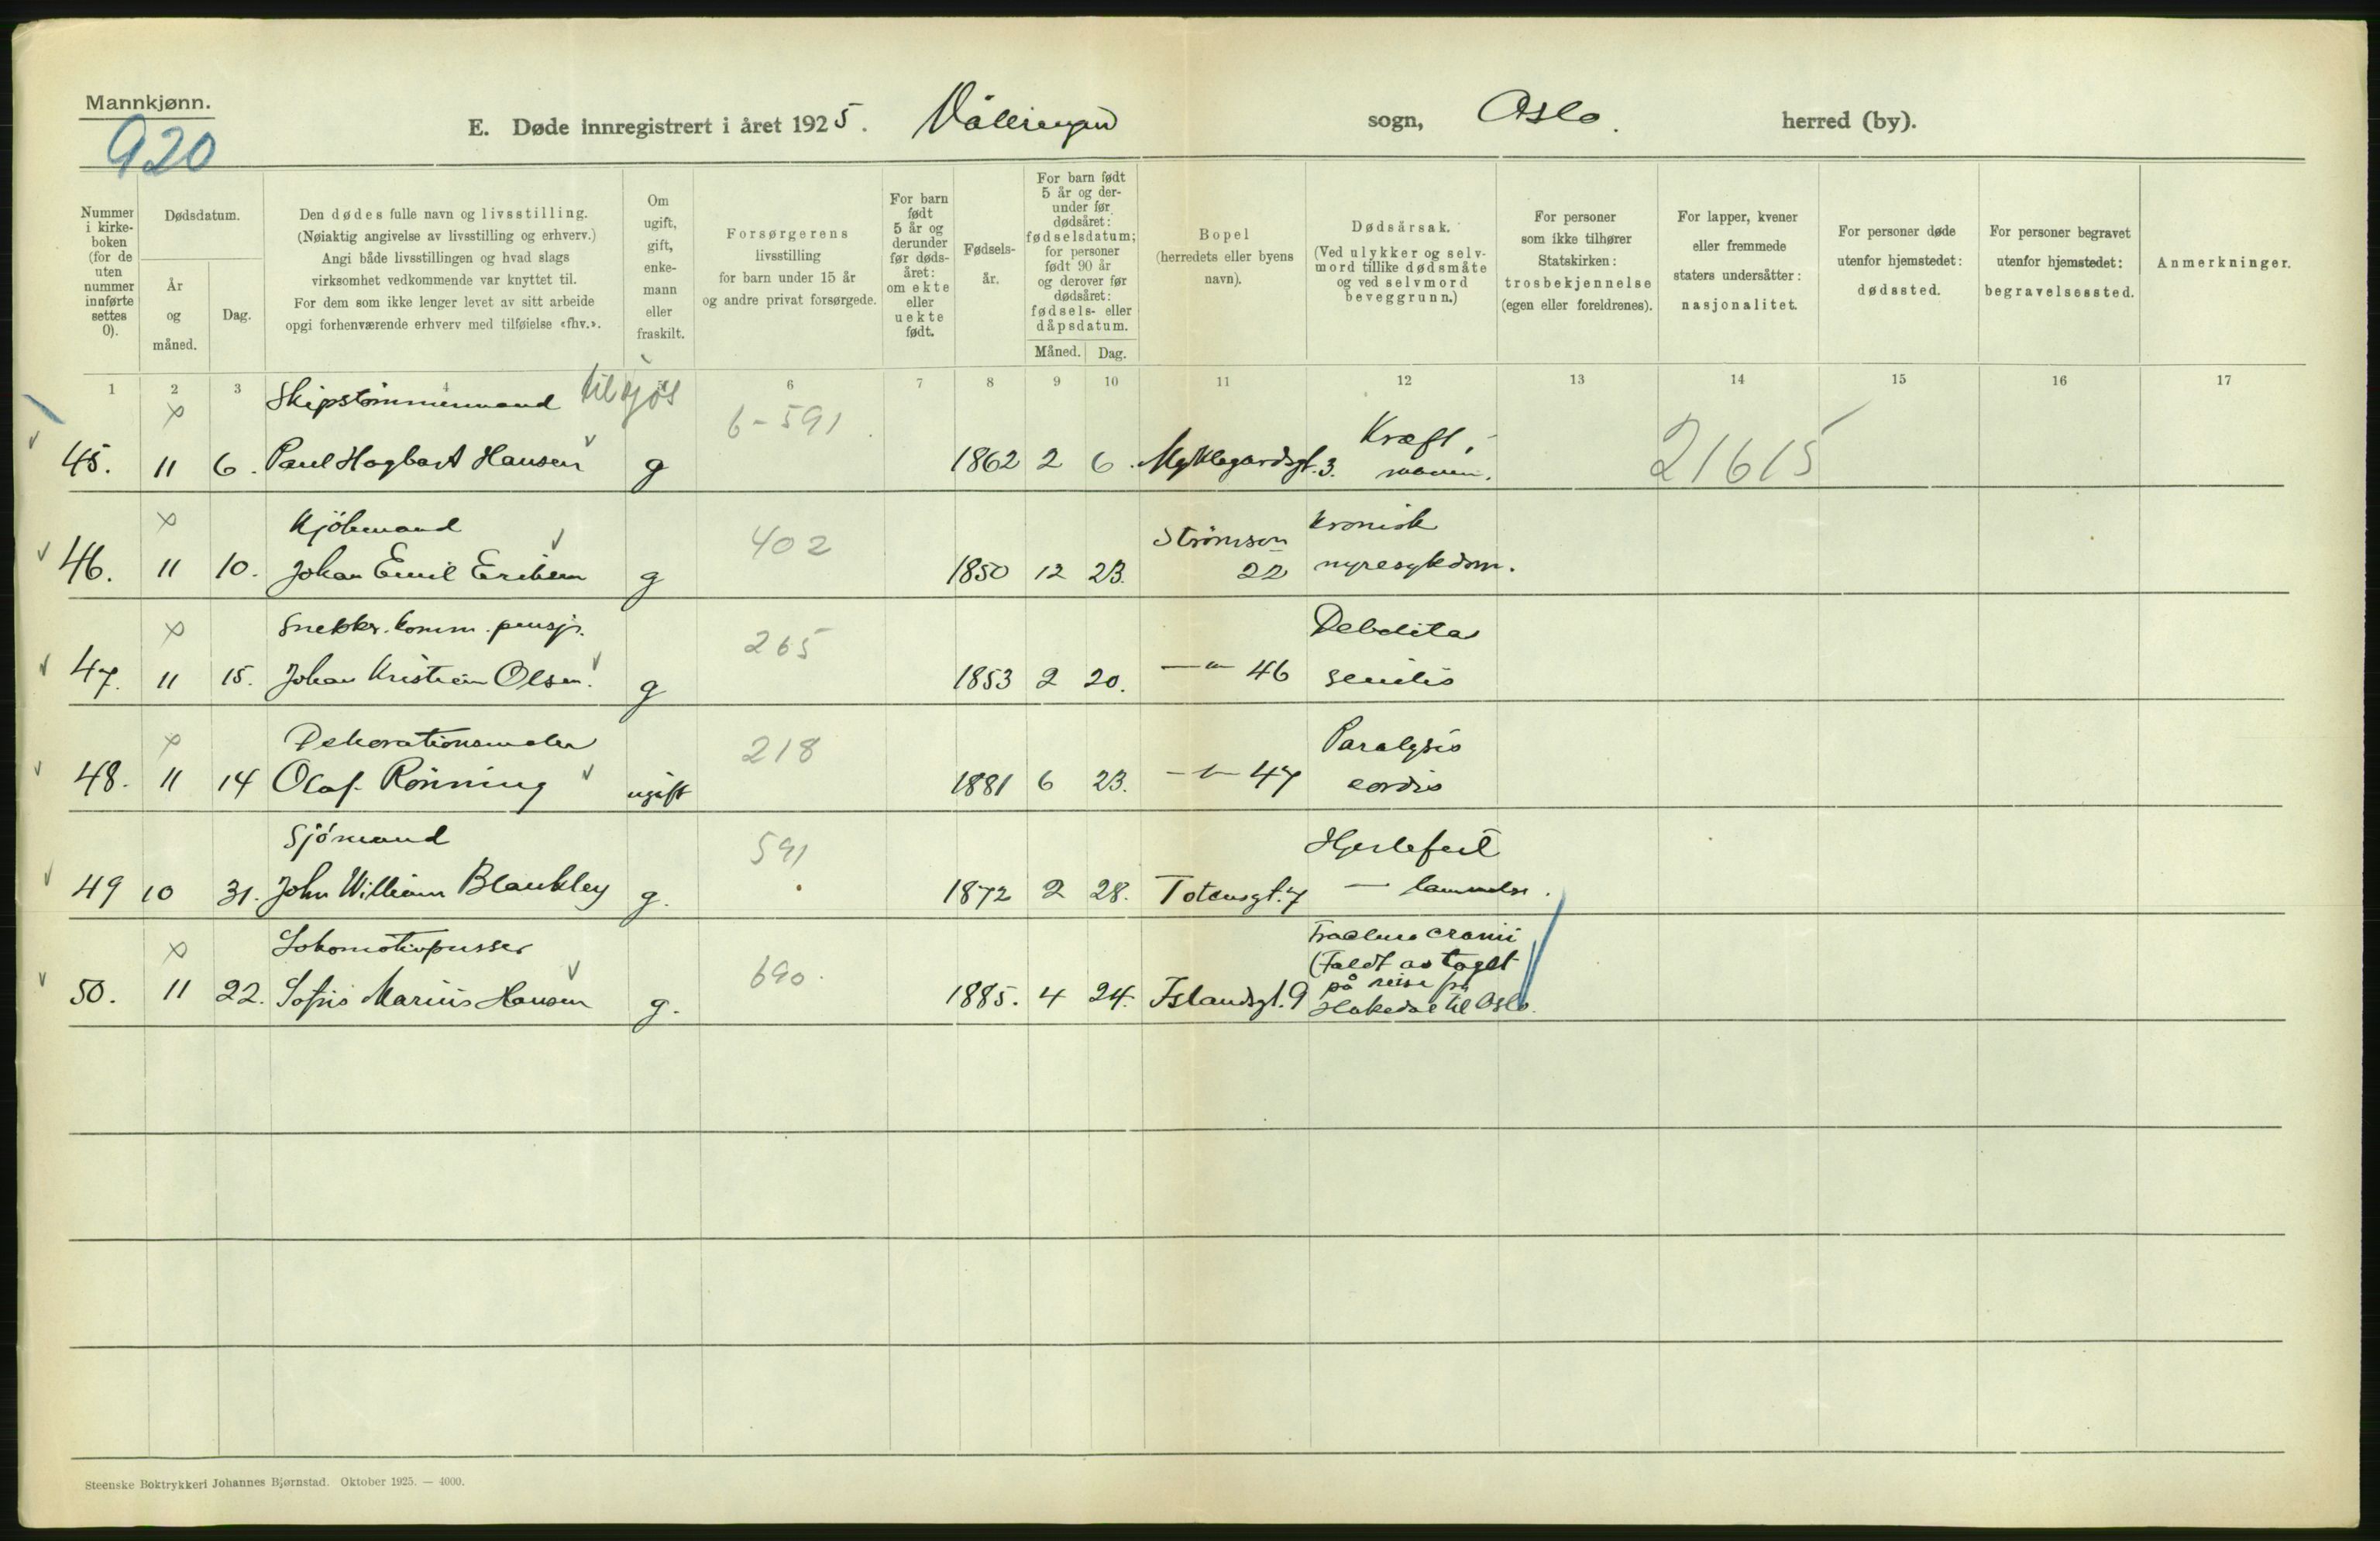 Mannkjønn.
920
E. Døde innregistrert i året 1925. Vålerengen sogn, Oslo. herred (by).
Nummer i kirke-boken (for de uten nummer innførte settes 0).
Dødsdatum.
År og måned.
Dag.
Den dødes fulle navn og livsstilling.
(Nøiaktig angivelse av livsstilling og erhverv.)
Angi både livsstillingen og hvad slags
virksomhet vedkommende var knyttet til.
For dem som ikke lenger levet av sitt arbeide
opgi forhenværende erhverv med tilføielse «fhv.».
Om ugift, gift, enke-mann eller fraskilt.
Forsørgerens
livsstilling
for barn under 15 år
og andre privat forsørgede.
For barn født 5 år og derunder før døds-året: om ekte eller uekte født.
Fødsels-år.
For barn født 5 år og der-under før dødsåret: fødselsdatum; for personer født 90 år og derover før dødsåret: fødsels- eller dåpsdatum.
Måned. Dag.
Bopel
(herredets eller byens
navn).
Dødsårsak.
(Ved ulykker og selv-
mord tillike dødsmåte
og ved selvmord
beveggrunn.)
For personer
som ikke tilhører
Statskirken:
trosbekjennelse
(egen eller foreldrenes).
For lapper, kvener
eller fremmede
staters undersåtter:
nasjonalitet.
For personer døde
utenfor hjemstedet:
dødssted.
For personer begravet
utenfor hjemstedet:
begravelsessted.
Anmerkninger.
1 2 3 4 5 6 7 8 9 10 11 12 13 14 15 16 17
Skipstømmermand til sjøs
6-591
Kræft,
45. 11 6. Paul Hagbart Hansen g 1862 2 6. Myklegardsgt. 3. maven. 21615
Kjøbmand 402 Strømsvn Kronisk
46. 11 10. Johan Emil Eriksen g 1850 12 23. 22 nyresykdom.
Snekker. komm. pensj. 265 Debilitas
47. 11 15. Johan Kristian Olsen. g 1853 2 20. —"— 46 senilis
Dekorationsmaler 218 Paralysis
48. 11 14 Olaf Rønning ugift 1881 6 23. —"— 47 cordis
Sjømand 591 Hjertefeil
49 10 31. John William Blankley g. 1872 2 28. Totensgt. 7 — lammelse.
Lokomotivpusser 690. Fractura cranii
(Faldt av toget
på reise fra
50. 11 22. Sofus Marius Hansen g. 1885. 4 24. Islandsgt. 9 Hakedal til Oslo.
Steenske Boktrykkeri Johannes Bjørnstad. Oktober 1925. — 4000.